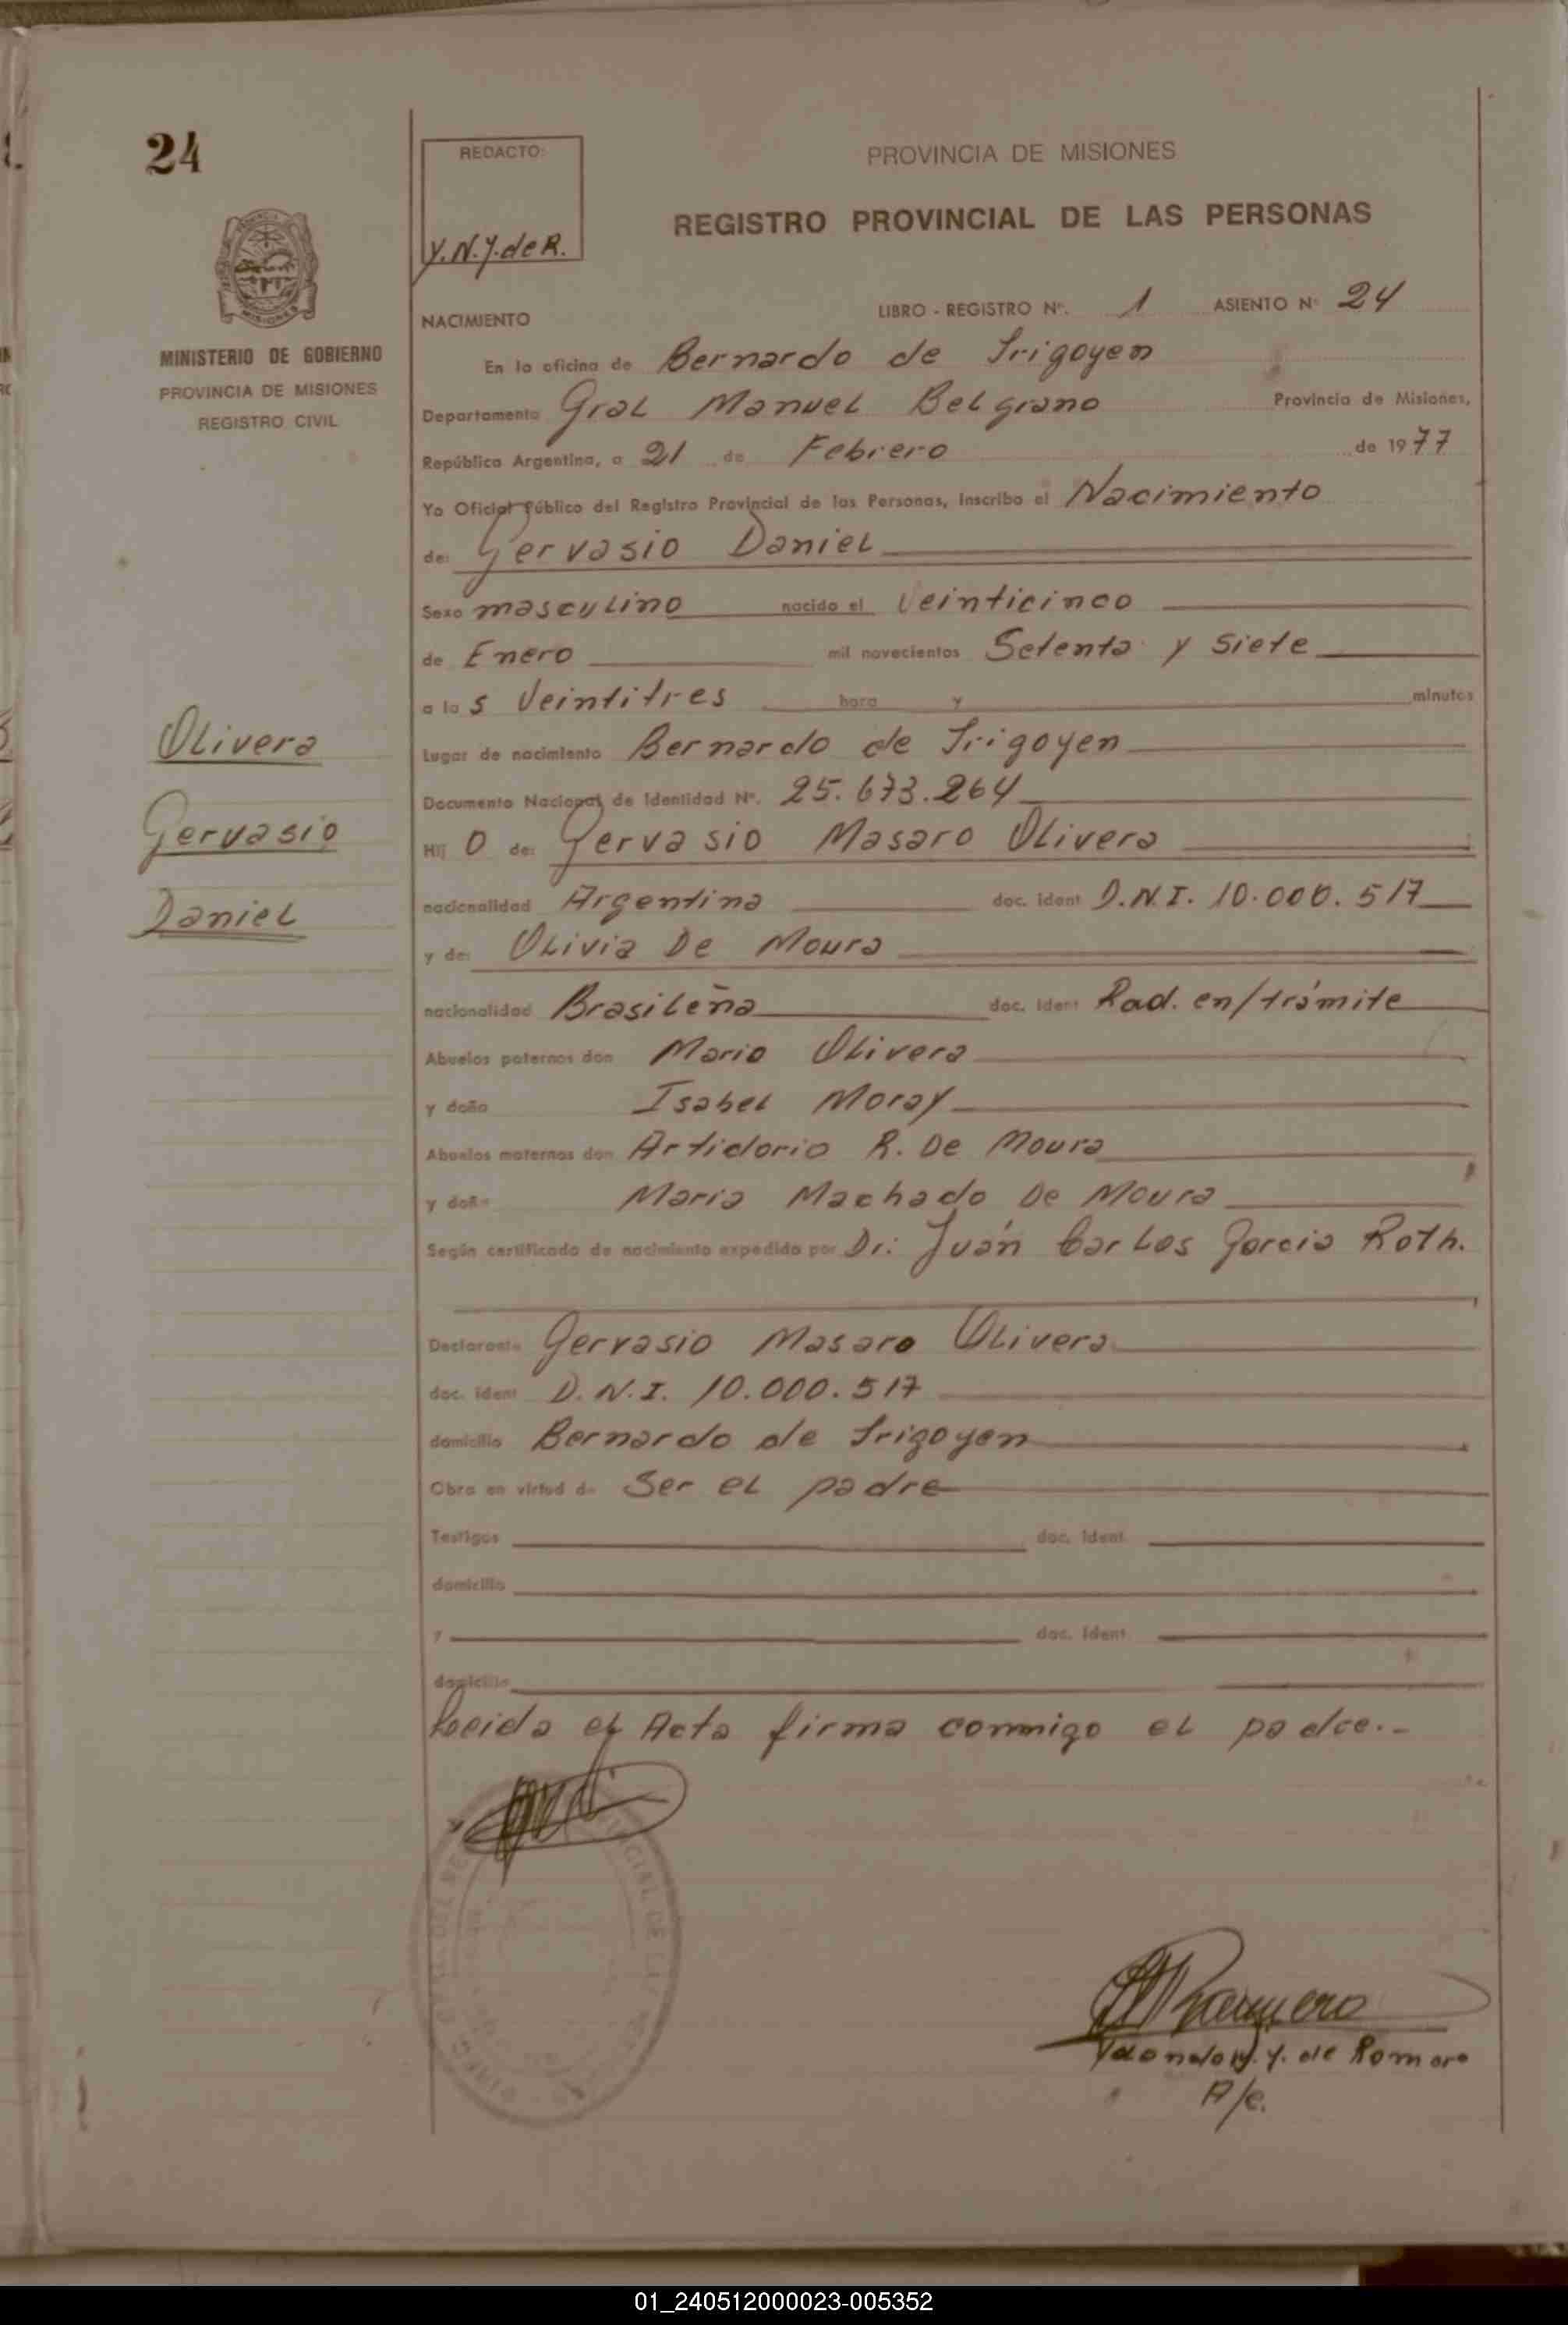 24
REDACTO:
Y.N.Y. de R.
PROVINCIA DE MISIONES
REGISTRO PROVINCIAL DE LAS PERSONAS
MINISTERIO DE GOBIERNO
PROVINCIA DE MISIONES
REGISTRO CIVIL
Olivera
Gervasio
Daniel
NACIMIENTO
LIBRO - REGISTRO Nº. 1 ASIENTO Nº 24
En la oficina de Bernardo de Irigoyen
Departamento Gral Manuel Belgrano Provincia de Misiones,
República Argentina, a 21 de Febrero de 1977
Yo Oficial Público del Registro Provincial de las Personas, Inscribo el Nacimiento
de: Gervasio Daniel
Sexo masculino nacido el Veinticinco
de Enero mil novecientos Setenta y Siete
a las Veintitres hora y minutos
Lugar de nacimiento Bernardo de Irigoyen
Documento Nacional de Identidad Nº. 25.673.264
Hij O de: Gervasio Masaro Olivera
nacionalidad Argentina doc. ident D.N.I. 10.000.517
y de: Olivia De Moura
nacionalidad Brasileña doc. ident Rad. en/trámite
Abuelos paternos don Mario Olivera
y doña Isabel Moray
Abuelos maternos don Artidorio R. De Moura
y doña Maria Machado De Moura
Según certificado de nacimiento expedido por Dr: Juán Carlos Garcia Roth.
Declarante Gervasio Masaro Olivera
doc. ident D.N.I. 10.000.517
domicilio Bernardo de Irigoyen
Obra en virtud de Ser el padre
Testigos doc. ident.
domicilio
y doc. ident
domicilio
Leida el Acta firma conmigo el padre.-
Romero
Y. de Romero
A/c.
01_240512000023-005352